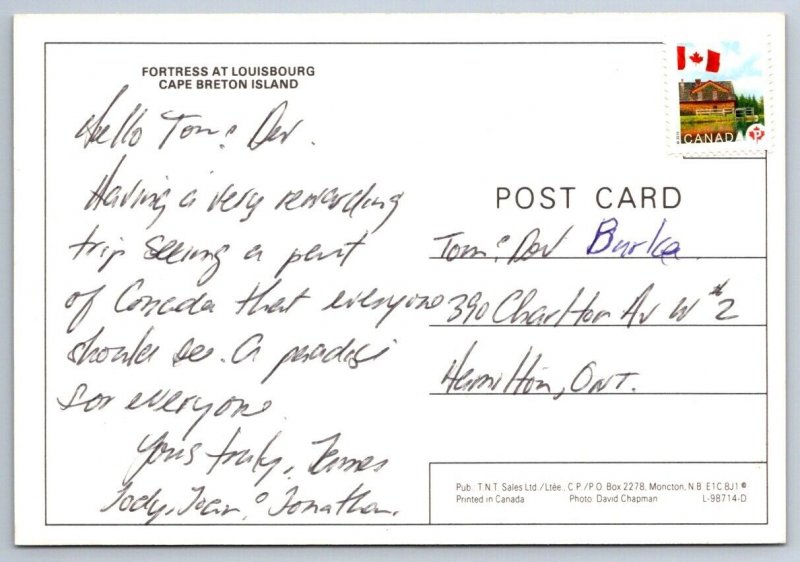 FORTRESS AT LOUISBOURG
CAPE BRETON ISLAND
Hello Tom & Dev.
Having a very rewarding
trip seeing a part
of Canada that everyone
should see. A paradise
for everyone.
Yours truly, James
Jody, Joan & Jonathan.
CANADA
P
POST CARD
Tom & Dev Burke
390 Charlton Av W #2
Hamilton, Ont.
Pub.: T.N.T. Sales Ltd./Ltée., C.P./P.O. Box 2278, Moncton, N.B. E1C 8J1 ©
Printed in Canada Photo: David Chapman L-98714-D